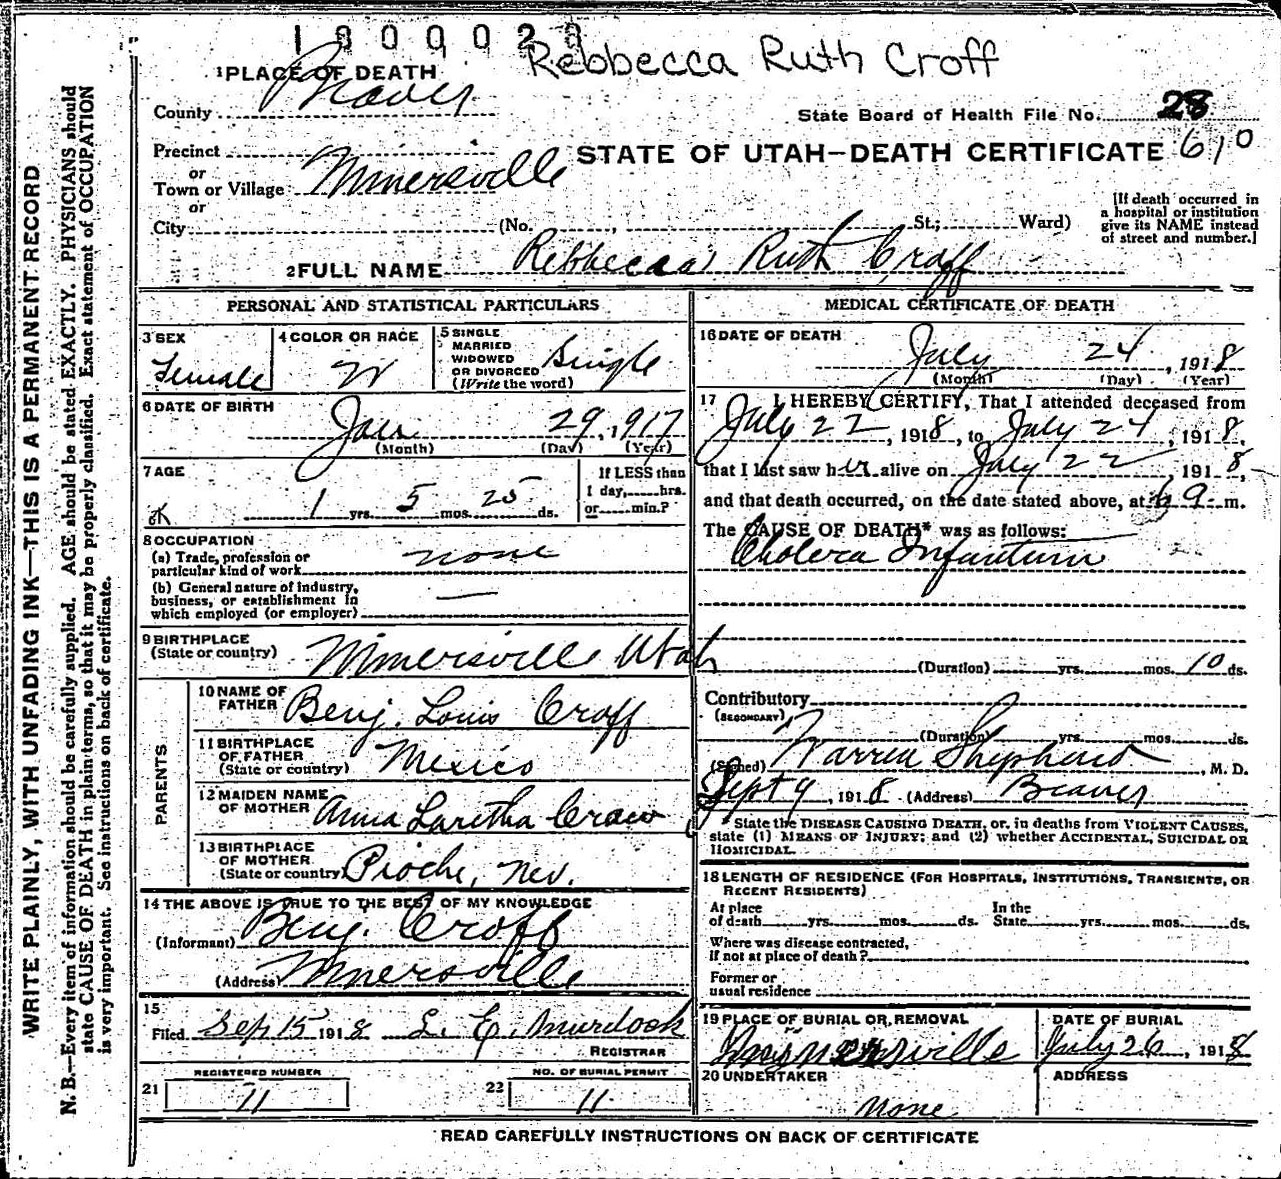 Rebbecca Ruth Croff
1 PLACE OF DEATH
County Beaver
State Board of Health File No. 28
Precinct
or
Town or Village Minersville
STATE OF UTAH—DEATH CERTIFICATE 610
or
City (No. , St.; Ward)
[If death occurred in
a hospital or institution
give its NAME instead
of street and number.]
2 FULL NAME Rebbecca Ruth Croff
PERSONAL AND STATISTICAL PARTICULARS
3 SEX
Female
4 COLOR OR RACE
W
5 SINGLE
MARRIED
WIDOWED
OR DIVORCED
(Write the word)
Single
6 DATE OF BIRTH
Jan 29, 1917
(Month) (Day) (Year)
7 AGE
1 yrs. 5 mos. 25 ds.
If LESS than
1 day, hrs.
or min.?
8 OCCUPATION
(a) Trade, profession or
particular kind of work none
(b) General nature of industry,
business, or establishment in
which employed (or employer) —
9 BIRTHPLACE
(State or country) Minersville Utah
PARENTS
10 NAME OF
FATHER Benj. Louis Croff
11 BIRTHPLACE
OF FATHER
(State or country) Mexico
12 MAIDEN NAME
OF MOTHER Anna Laretha Craw
13 BIRTHPLACE
OF MOTHER
(State or country) Pioche, Nev.
14 THE ABOVE IS TRUE TO THE BEST OF MY KNOWLEDGE
(Informant) Benj. Croff
(Address) Minersville
15
Filed Sep 15 1918 L. E. Murdock
REGISTRAR
REGISTERED NUMBER
21 11
NO. OF BURIAL PERMIT
22 11
MEDICAL CERTIFICATE OF DEATH
16 DATE OF DEATH
July 24, 1918
(Month) (Day) (Year)
17 I HEREBY CERTIFY, That I attended deceased from
July 22, 1918, to July 24, 1918,
that I last saw her alive on July 22 1918,
and that death occurred, on the date stated above, at m.
The CAUSE OF DEATH* was as follows:
Cholera Infantum
(Duration) yrs. mos. 10 ds.
Contributory
(SECONDARY)
(Duration) yrs. mos. ds.
(Signed) Warren Shepherd, M. D.
Sept 9, 1918 (Address) Beaver
*State the DISEASE CAUSING DEATH, or, in deaths from VIOLENT CAUSES,
state (1) MEANS OF INJURY; and (2) whether ACCIDENTAL, SUICIDAL OR
HOMICIDAL.
18 LENGTH OF RESIDENCE (FOR HOSPITALS, INSTITUTIONS, TRANSIENTS, OR
RECENT RESIDENTS)
At place
of death yrs. mos. ds.
In the
State yrs. mos. ds.
Where was disease contracted,
if not at place of death?
Former or
usual residence
19 PLACE OF BURIAL OR REMOVAL
Minersville
DATE OF BURIAL
July 26, 1918
20 UNDERTAKER
none
ADDRESS
READ CAREFULLY INSTRUCTIONS ON BACK OF CERTIFICATE
WRITE PLAINLY, WITH UNFADING INK—THIS IS A PERMANENT RECORD
N. B.—Every item of information should be carefully supplied. AGE should be stated EXACTLY. PHYSICIANS should
state CAUSE OF DEATH in plain terms, so that it may be properly classified. Exact statement of OCCUPATION
is very important. See instructions on back of certificate.